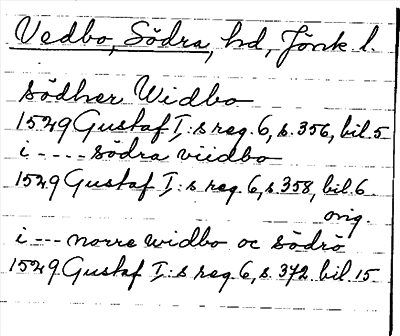 Vedbo, Södra, hd, Jönk l.
södher Widbo
1529 Gustaf I:s reg. 6, s. 356, bil. 5
i - - - - södra viidbo
1529 Gustaf I:s reg. 6, s. 358, bil. 6
orig.
i - - - norre widbo oc södrö
1529 Gustaf I:s reg. 6, s. 372 bil. 15